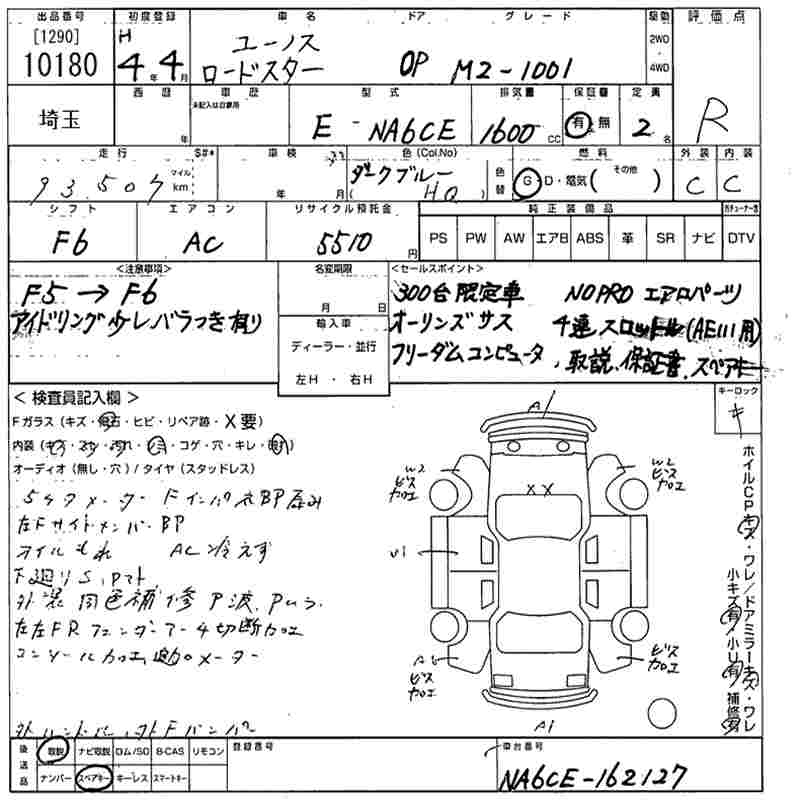 出品番号 初度登録 車名 ドア グレード 駆動 評価点
[1290] H ユーノス 2WD
10180 4年 4月 ロードスター OP M2-1001 4WD
埼玉 西暦 車歴 型式 排気量 保証書 定員 R
未記入は自家用
年 E-NA6CE 1600cc 有・無 2名
走行 S#* 車検 色(Col.No) 燃料 外装 内装
93,507 マイル km 年 月 ダークブルー 色替 G・D・電気( その他 ) C C
シフト エアコン リサイクル預託金 純正装備品
F6 AC 5510円 PS PW AW エアB ABS 革 SR ナビ DTV
<注意事項> 名変期限 <セールスポイント>
F5→F6 月 日 300台限定車 NOPRO エアロパーツ
アイドリング少しバラつき有り 輸入車 オーリンズサス 4連スロットル(AE111用)
ディーラー・並行 フリーダムコンピュータ、取説、保証書、スペアキー
左H・右H
<検査員記入欄> キーロック
Fガラス(キズ・飛石・ヒビ・リペア跡・X要) キ
内装(キズ・スレ・汚れ・シミ・コゲ・穴・キレ・
オーディオ(無し・穴)/タイヤ(スタッドレス)
左FサイドメンバーBP
オイルもれ AC冷えず
下廻りS、Pマト
外装同色補修P波、
フェンダーアーチ切断加工
コンソール加工、追加メーター
社外ハンドル、社外Fバンパー
A1
W2 ビス加工
W2 ビス加工
XX
U1
ビス加工
ビス加工
A1
ホイルCPキズ・ワレ/ドアミラーキズ・ワレ
小キズ有/小U有 補修有
後送品 取説 ナビ取説 ロム/SD B-CAS リモコン 登録番号 車台番号
ナンバー スペアキー キーレス スマートキー NA6CE-162127